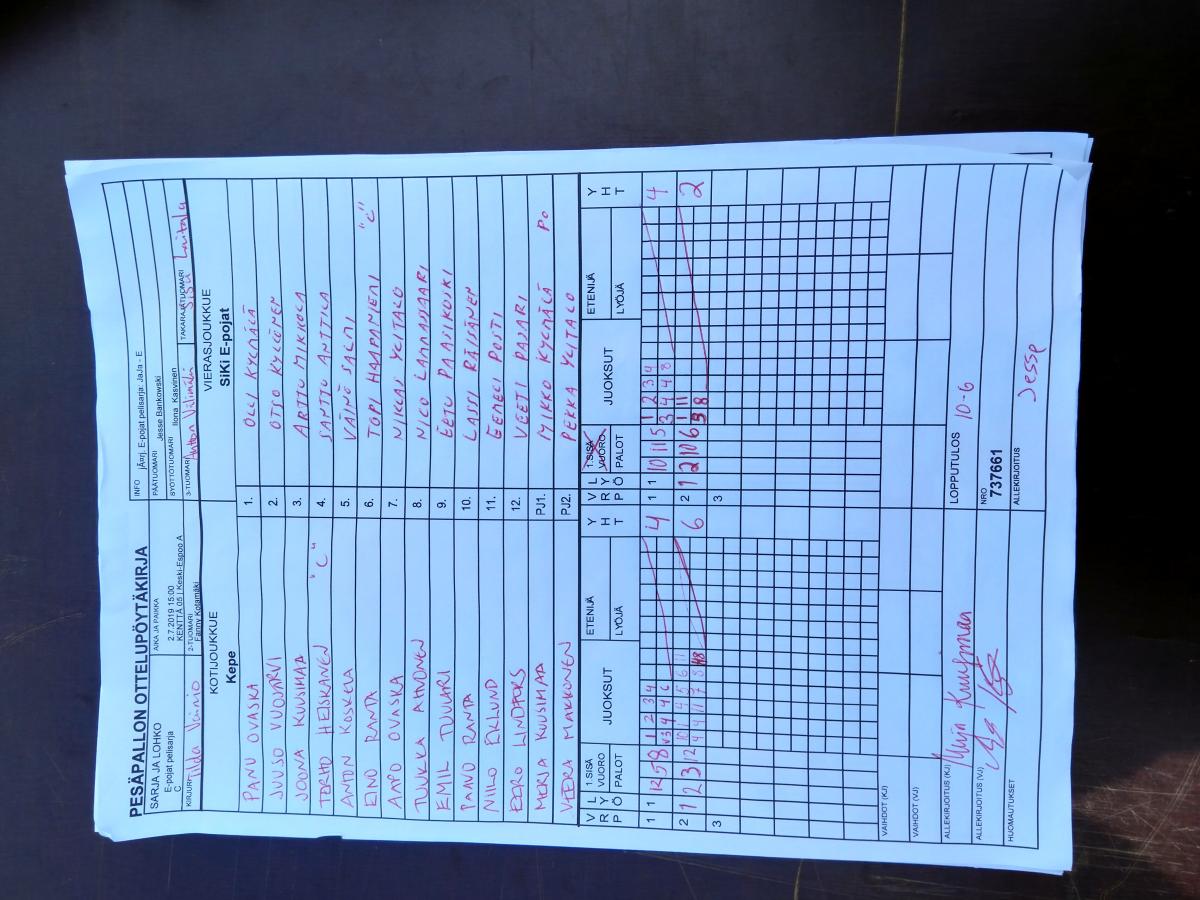 PESÄPALLON OTTELUPÖYTÄKIRJA
SARJA JA LOHKO
E-pojat pelisarja
C
AIKA JA PAIKKA
2.7.2019 15:00
KENTTÄ 05 | Keski-Espoo A
INFO jÃ¤rj. E-pojat pelisarja: JaJa - E
PÄÄTUOMARI Jesse Bankowski
SYÖTTÖTUOMARI Ilona Kasvinen
KIRJURI Tilda Vainio
2-TUOMARI
Fanny Kotamäki
3-TUOMARI Anton Välimäki
TAKARAJATUOMARI
KOTIJOUKKUE
Kepe
VIERASJOUKKUE
SiKi E-pojat
PANU OVASKA 1. OLLI KYLMÄLÄ
JUUSO VUOJÄRVI 2. OTSO KYLÖNEN
JOONA KUUSIMAA 3. ARTTU MIKKOLA
TERHO HEISKANEN "C" 4. SANTTU ANTTILA
ANTON KOSKELA 5. VÄINÖ SALMI
EINO RANTA 6. TOPI HAAPANIEMI "C"
AAPO OVASKA 7. NIKLAS YLITALO
TUUKKA AHVONEN 8. NICO LAMMASSAARI
EMIL TUUURI 9. EETU PAASIKOSKI
PAAVO RANTA 10. LASSI RÄISÄNEN
NIILO EKLUND 11. EEMELI POSTI
EERO LINDFORS 12. VEETI PAJARI
MERJA KUUSIMAA PJ1. MIKKO KYLMÄLÄ PO
VEERA MAKKONEN PJ2. PEKKA YLITALO
VRP LYÖ 1.SISÄ VUORO PALOT JUOKSUT ETENIJÄ LYÖJÄ YHT
VRP LYÖ 1.SISÄ VUORO PALOT JUOKSUT ETENIJÄ LYÖJÄ YHT
1 1 12 5 8 1 2 3 4 4
1 1 10 11 5 1 2 3 4 4
2 1 6
2 1 2
3
3
VAIHDOT (KJ)
VAIHDOT (VJ)
ALLEKIRJOITUS (KJ)
LOPPUTULOS 10-6
ALLEKIRJOITUS (VJ)
NRO
737661
HUOMAUTUKSET
ALLEKIRJOITUS
Jesse